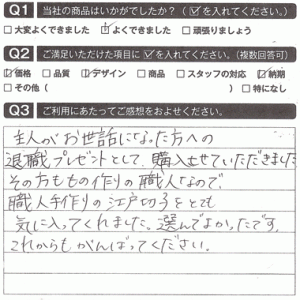 Q1 当社の商品はいかがでしたか？（☑を入れてください。）
□大変よくできました ☑よくできました □頑張りましょう
Q2 ご満足いただけた項目に☑を入れてください。（複数回答可）
☑価格 □品質 ☑デザイン □商品 □スタッフの対応 ☑納期
□その他（ ）□特になし
Q3 ご利用にあたってご感想をおよせください。
主人がお世話になった方への
退職プレゼントとして、購入させていただきました
その方ももの作りの職人なので、
職人手作りの江戸切子をとても
気に入ってくれました。選んでよかったです。
これからもがんばってください。